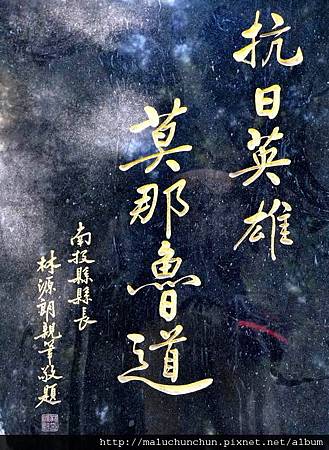 抗日英雄
莫那魯道
南投縣縣長
林源朗親筆敬題
http://maluchunchun.pixnet.net/album